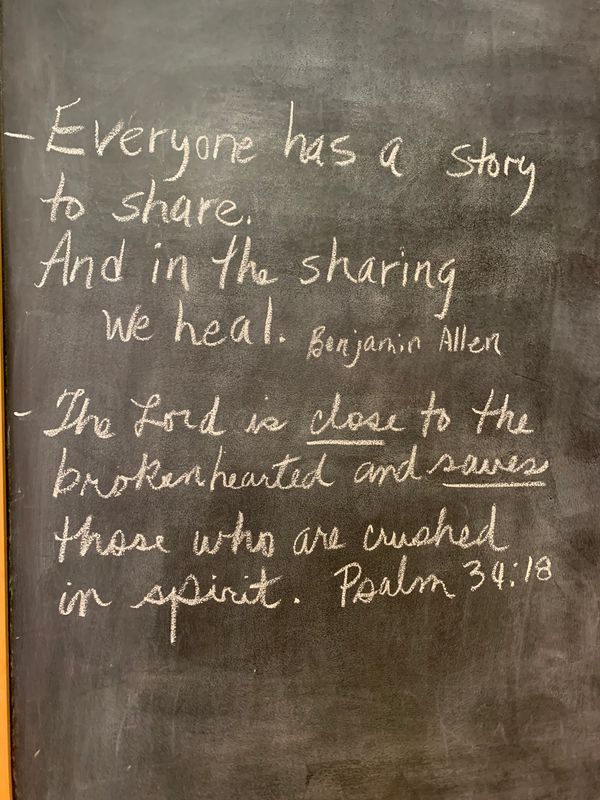 - Everyone has a story
to share.
And in the sharing
we heal. Benjamin Allen
- The Lord is close to the
brokenhearted and saves
those who are crushed
in spirit. Psalm 34:18